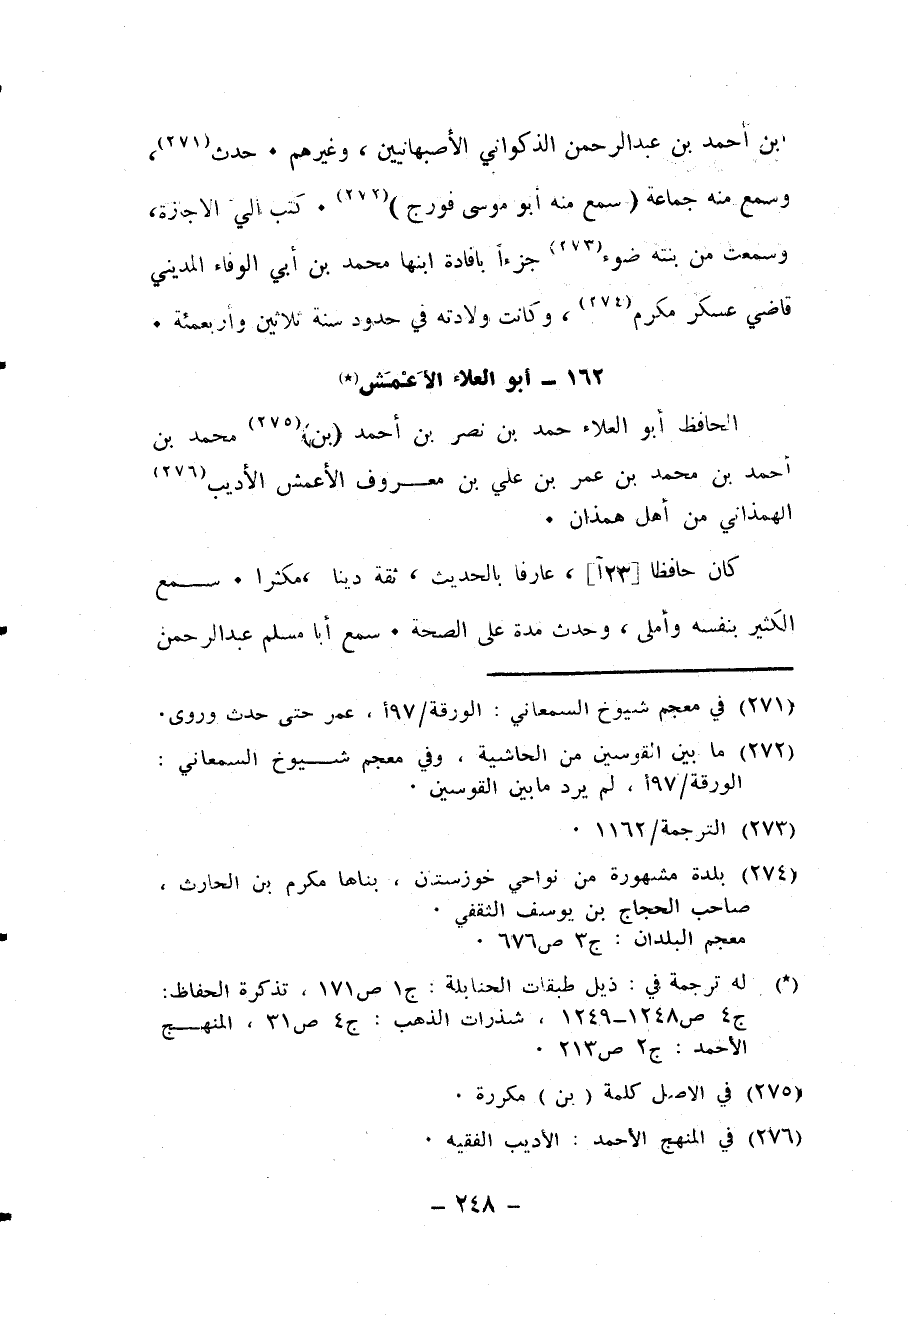 بن أحمد بن عبدالرحمن الذكواني الأصبهانيين ، وغيرهم ٠ حدث(٢٧١)،
وسمع منه جماعة ( سمع منه أبو موسى فورج )(٢٧٢) ٠ كتب الي الاجازة،
وسمعت من بنته ضوء(٢٧٣) جزءاً بافادة ابنها محمد بن أبي الوفاء المديني
قاضي عسكر مكرم(٢٧٤) ، وكانت ولادته في حدود سنة ثلاثين وأربعمئة ٠
١٦٢ – أبو العلاء الأَعْمَش(*)
الحافظ أبو العلاء حمد بن نصر بن أحمد (بن)(٢٧٥) محمد بن
أحمد بن محمد بن عمر بن علي بن معـــروف الأعمش الأديب(٢٧٦)
الهمذاني من أهل همذان ٠
كان حافظا [٢٣أ] ، عارفا بالحديث ، ثقة دينا ،مكثرا ٠ ســـمع
الكثير بنفسه وأملى ، وحدث مدة على الصحة ٠ سمع أبا مسلم عبدالرحمن
(٢٧١) في معجم شيوخ السمعاني : الورقة/٩٧أ ، عمر حتى حدث وروى٠
(٢٧٢) ما بين القوسين من الحاشية ، وفي معجم شـــيوخ السمعاني :
الورقة/٩٧أ ، لم يرد مابين القوسين ٠
(٢٧٣) الترجمة/١١٦٢ ٠
(٢٧٤) بلدة مشهورة من نواحي خوزستان ، بناها مكرم بن الحارث ،
صاحب الحجاج بن يوسف الثقفي ٠
معجم البلدان : ج٣ ص٦٧٦ ٠
(*) له ترجمة في : ذيل طبقات الحنابلة : ج١ ص١٧١ ، تذكرة الحفاظ:
ج٤ ص١٢٤٨–١٢٤٩ ، شذرات الذهب : ج٤ ص٣١ ، المنهـــج
الأحمد : ج٢ ص٢١٣ ٠
(٢٧٥) في الاصل كلمة ( بن ) مكررة ٠
(٢٧٦) في المنهج الأحمد : الأديب الفقيه ٠
– ٢٤٨ –